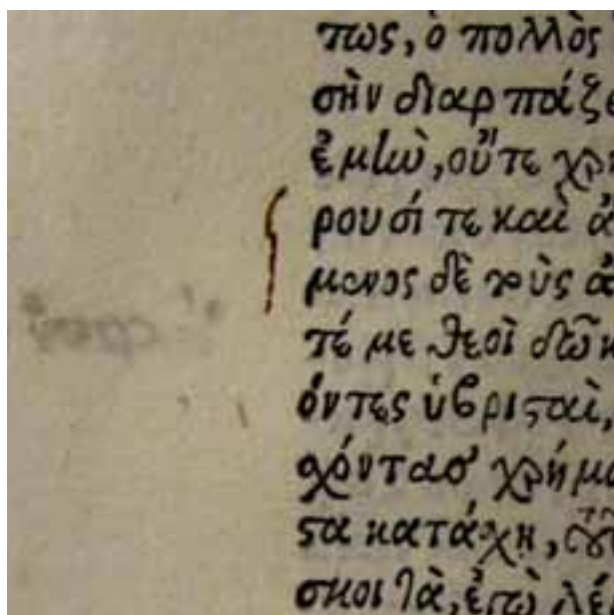 πως, ὁ πολλὸς
σὴν διαρπάζε
ἐμὴν, οὔτε χρη
ρουσί τε καὶ ἀ
μενος δὲ τοὺς ἀ
τέ με θεοὶ δῶκ
όντες ὑβρισταὶ,
χόντας χρήμα
στα κατάχῃ,